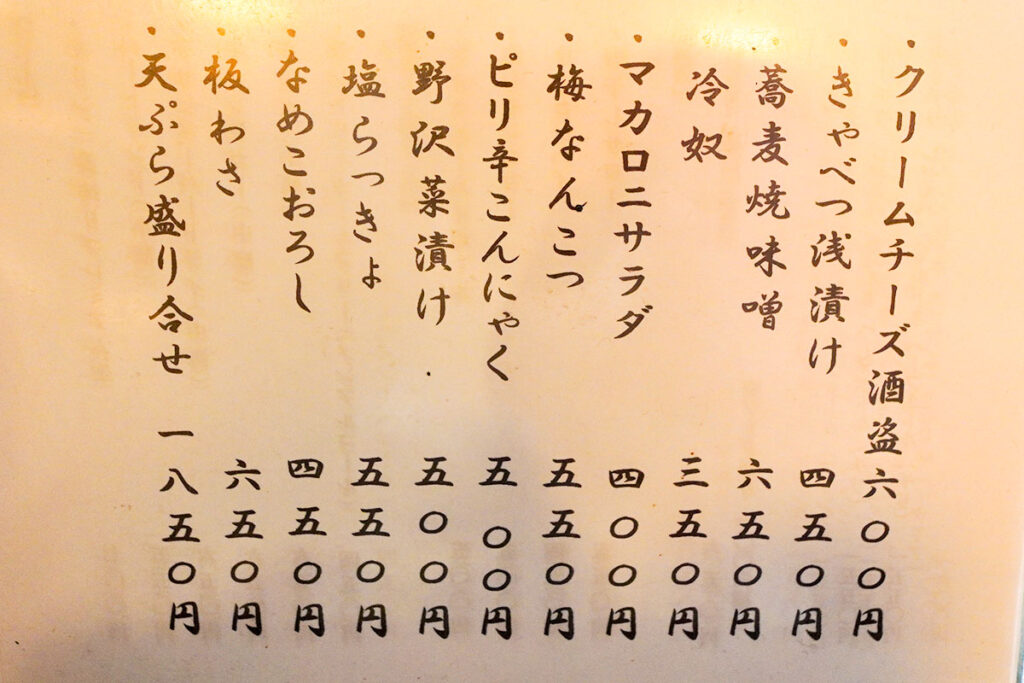 ・クリームチーズ酒盗 六〇〇円
・きゃべつ浅漬け 四五〇円
・蕎麦焼味噌 六五〇円
・冷奴 三五〇円
・マカロニサラダ 四〇〇円
・梅なんこつ 五五〇円
・ピリ辛こんにゃく 五〇〇円
・野沢菜漬け 五〇〇円
・塩らっきょ 五五〇円
・なめこおろし 四五〇円
・板わさ 六五〇円
・天ぷら盛り合せ 一八五〇円